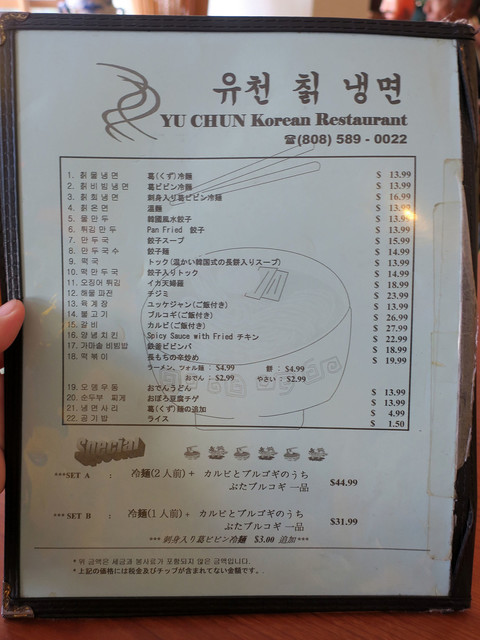 유천 칡 냉면
YU CHUN Korean Restaurant
☎(808) 589 - 0022
1. 칡 물 냉 면 葛(くず)冷麺 $ 13.99
2. 칡 비 빔 냉 면 葛ビビン冷麺 $ 13.99
3. 칡 회 냉 면 刺身入り葛ビビン冷麺 $ 16.99
4. 칡 온 면 温麺 $ 13.99
5. 물 만 두 韓國風水餃子 $ 13.99
6. 튀김 만 두 Pan Fried 餃子 $ 13.99
7. 만 두 국 餃子スープ $ 15.99
8. 만 두 국 수 餃子麺 $ 14.99
9. 떡 국 トック(温かい韓国式の長餅入りスープ) $ 13.99
10. 떡 만 두 국 餃子入りトック $ 14.99
11. 오징어 튀김 イカ天婦羅 $ 18.99
12. 해물 파전 チジミ $ 23.99
13. 육 계 장 ユッケジャン(ご飯付き) $ 13.99
14. 불 고 기 ブルコギ(ご飯付き) $ 26.99
15. 갈 비 カルビ(ご飯付き) $ 27.99
16. 양 념 치 킨 Spicy Sauce with Fried チキン $ 22.99
17. 가마솥 비빔밥 鉄釜ビビンバ $ 18.99
18. 떡 볶 이 長もちの辛炒め $ 19.99
ラーメン、ツォル麺 : $4.99 餅 : $4.99
おでん : $2.99 やさい : $2.99
19. 오 뎅 우 동 おでんうどん $ 13.99
20. 순두부 찌게 おぼろ豆腐チゲ $ 13.99
21. 냉 면 사 리 葛(くず)麺の追加 $ 4.99
22. 공 기 밥 ライス $ 1.50
Special
***SET A : 冷麺(2人前)+ カルビとブルコギのうち
ぶたブルコギ 一品 $44.99
*** SET B : 冷麺(1人前)+ カルビとブルコギのうち
ぶたブルコギ 一品 $31.99
*** 刺身入り葛ビビン冷麺 $3.00 追加 ***
* 위 금액은 세금과 봉사료가 포함되지 않은 금액입니다.
* 上記の価格には税金及びチップが含まれてない金額です。